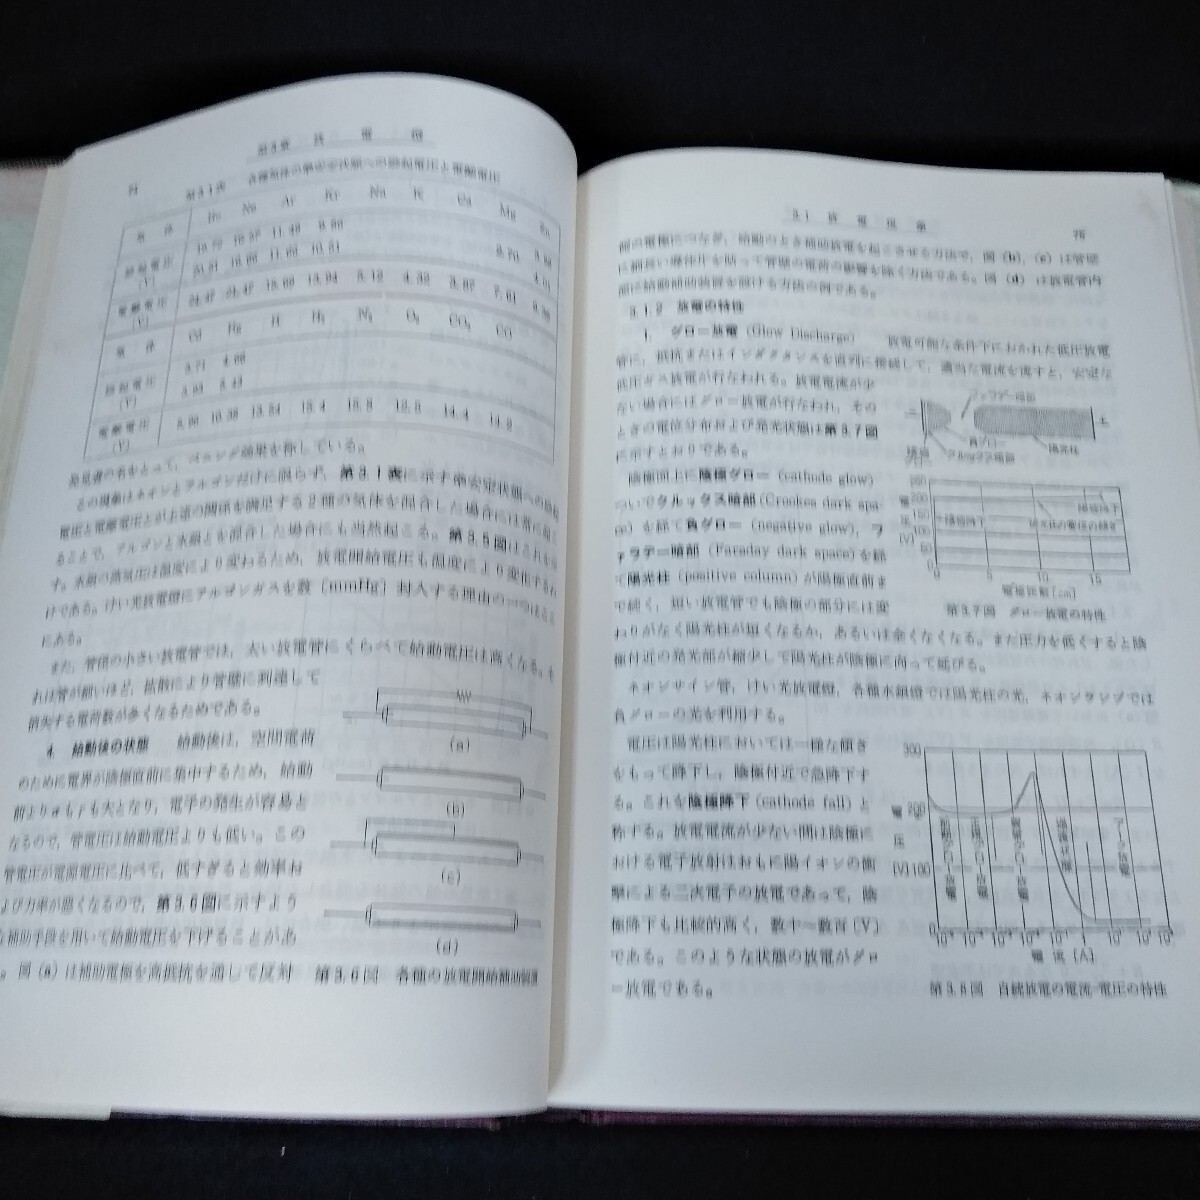 第3章 放電灯
第3.1表 各種気体の準安定状態への励起電圧と電離電圧
気体 He Ne Ar Kr Na K Ca Mg Zn
電離電圧
(V)
気体 Cd Hg H H₂ N₂ O₂ CO₂ CO
励起電圧
(V)
電離電圧
(V)
発見者の名をとって，ペニング効果を称している。
この現象はネオンとアルゴンだけに限らず，第3.1表に示す準安定状態への励起
電圧と電離電圧とが上述の関係を満足する2種の気体を混合した場合には常に起こ
ることで，アルゴンと水銀とを混合した場合にも当然起こる。第3.5図はこれを示
す。水銀の蒸気圧は温度により変わるため，放電開始電圧も温度により変化するわ
けである。けい光放電灯にアルゴンガスを数〔mmHg〕封入する理由の一つはここ
にある。
また，管径の小さい放電管では，太い放電管にくらべて始動電圧は高くなる。そ
れは管が細いほど，拡散により管壁に到達して
消失する電荷数が多くなるためである。
4. 始動後の状態 始動後は，空間電荷
のために電界が陰極直前に集中するため，始動
前よりαもγも大となり，電子の発生が容易と
なるので，管電圧は始動電圧よりも低い。この
管電圧が電源電圧に比べて，低すぎると効率お
よび力率が悪くなるので，第3.6図に示すよう
な補助手段を用いて始動電圧を下げることがあ
。図(a)は補助電極を高抵抗を通して反対
(a)
(b)
(c)
(d)
第3.6図 各種の放電開始補助装置
3.1 放電現象 75
側の電極につなぎ，始動のとき補助放電を起こさせる方法で，図(b)，(c)は管壁
に細長い導体片を貼って管壁の電荷の影響を除く方法である。図(d)は放電管内
部に始動補助装置を設ける方法の例である。
3.1.2 放電の特性
1. グロー放電(Glow Discharge) 放電可能な条件下におかれた低圧放電
管に，抵抗またはインダクタンスを直列に接続して，適当な電流を流すと，安定な
低圧ガス放電が行なわれる。放電電流が少
ない場合にはグロー放電が行なわれ，その
ときの電位分布および発光状態は第3.7図
に示すとおりである。
陰極面上に陰極グロー(cathode glow)
ついでクルックス暗部(Crookes dark spa-
ce)を経て負グロー(negative glow)，フ
ァラデー暗部(Faraday dark space)を経
て陽光柱(positive column)が陽極直前ま
で続く，短い放電管でも陰極の部分には変
わりがなく陽光柱が短くなるか，あるいは全くなくなる。また圧力を低くすると陰
極付近の発光部が縮少して陽光柱が陰極に向って延びる。
ネオンサイン管，けい光放電灯，各種水銀灯では陽光柱の光，ネオンランプでは
負グローの光を利用する。
電圧は陽光柱においては一様な傾き
をもって降下し，陰極付近で急降下す
る。これを陰極降下(cathode fall)と
称する。放電電流が少ない間は陰極に
おける電子放射はおもに陽イオンの衝
撃による二次電子の放電であって，陰
極降下も比較的高く，数十〜数百〔V〕
である。このような状態の放電がグロ
ー放電である。
ファラデー暗部
負グロー
クルックス暗部
陽光柱
250
200
150
100
50
0
電圧〔V〕
陰極降下
0 5 10 15
電極距離〔cm〕
第3.7図 グロー放電の特性
300
200
100
0
電圧〔V〕
正規グロー放電
異常グロー放電
過渡状態
アーク放電
電流〔A〕
第3.8図 自続放電の電流-電圧の特性